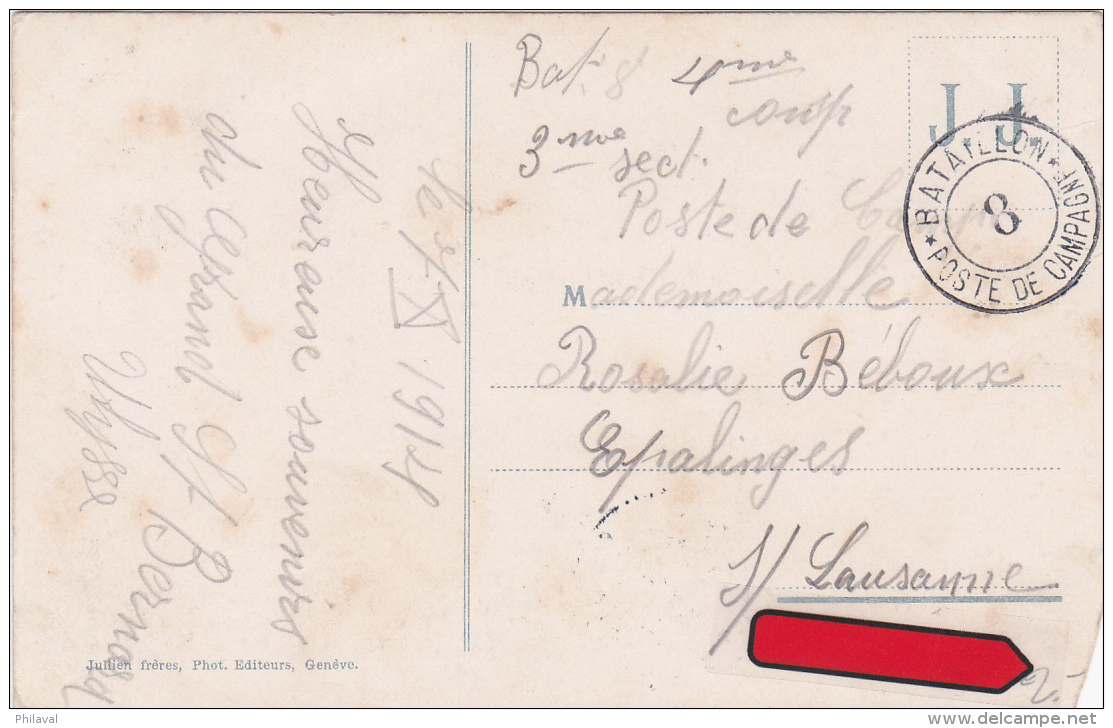 Le 5/XI 1914
Heuraise souvenirs
du Grand St Bernard
Ulysse
Bat. 8 4me
comp
3me sect.
Poste de Camp
Mademoiselle
Rosalie Béboux
Epalinges
s/ Lausanne
J. J.
BATAILLON
8
POSTE DE CAMPAGNE
Jullien frères, Phot. Editeurs, Genève.
2.-
Philaval
delcampe.net